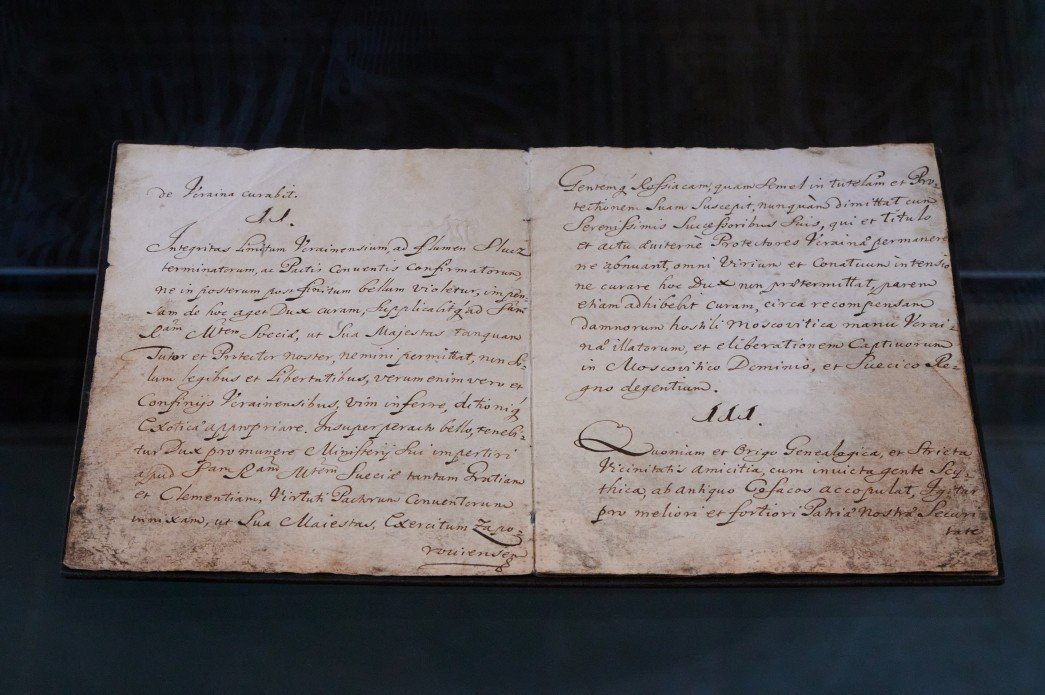 de Vcraina curabit.
II.
Integritas limitum Vcrainensium, ad flumen Slucz
terminatorum, ac Pactis Conventis Confirmatorum
ne in posterum post finitum bellum violetur, impen-
sam de hoc aget Dux curam, supplicabitq́ ad Sam
Ram Mtem Sueciæ, ut Sua Majestas tanquam
Tutor et Protector noster, nemini permittat, non so-
lum legibus et Libertatibus, verum enim vero et
Confinijs Vcrainensibus, vim inferre, ditioniq́
Exoticæ appropriare. Insuper peracto bello, tenebi-
tur Dux pro munere Ministerij sui impertiri
apud Sam Ram Mtem Sueciæ tantam Gratiam
et Clementiam, Virtuti Pactorum Conventorum
innixam, ut Sua Maiestas, Exercitum Zapo-
rouiensem
Gentemq́ Rossiacam, quam semel in tutelam et Pro-
tectionem Suam Suscepit, nunquam dimittat cum
Serenissimis Successoribus Suis, qui et titulo
et actu æviterne Protectores Vcrainæ permanere
ne abnuant, omni Virium et Conatuum intensio
ne curare hoc Dux non prætermittat, parem
etiam adhibebit Curam, circa recompensam
damnorum hostili Moscovitica manu Vcrai-
næ illatorum, et eliberationem Captivorum
in Moscovitico Dominio, et Suecico Re-
gno degentium.
III.
Quoniam et Origo Genealogica, et Stricta
Vicinitatis amicitia, cum invicta gente Scy-
thica, ab antiquo Cosacos accopulat, Igitur
pro meliori et fortiori Patriæ Nostræ Securi
tate